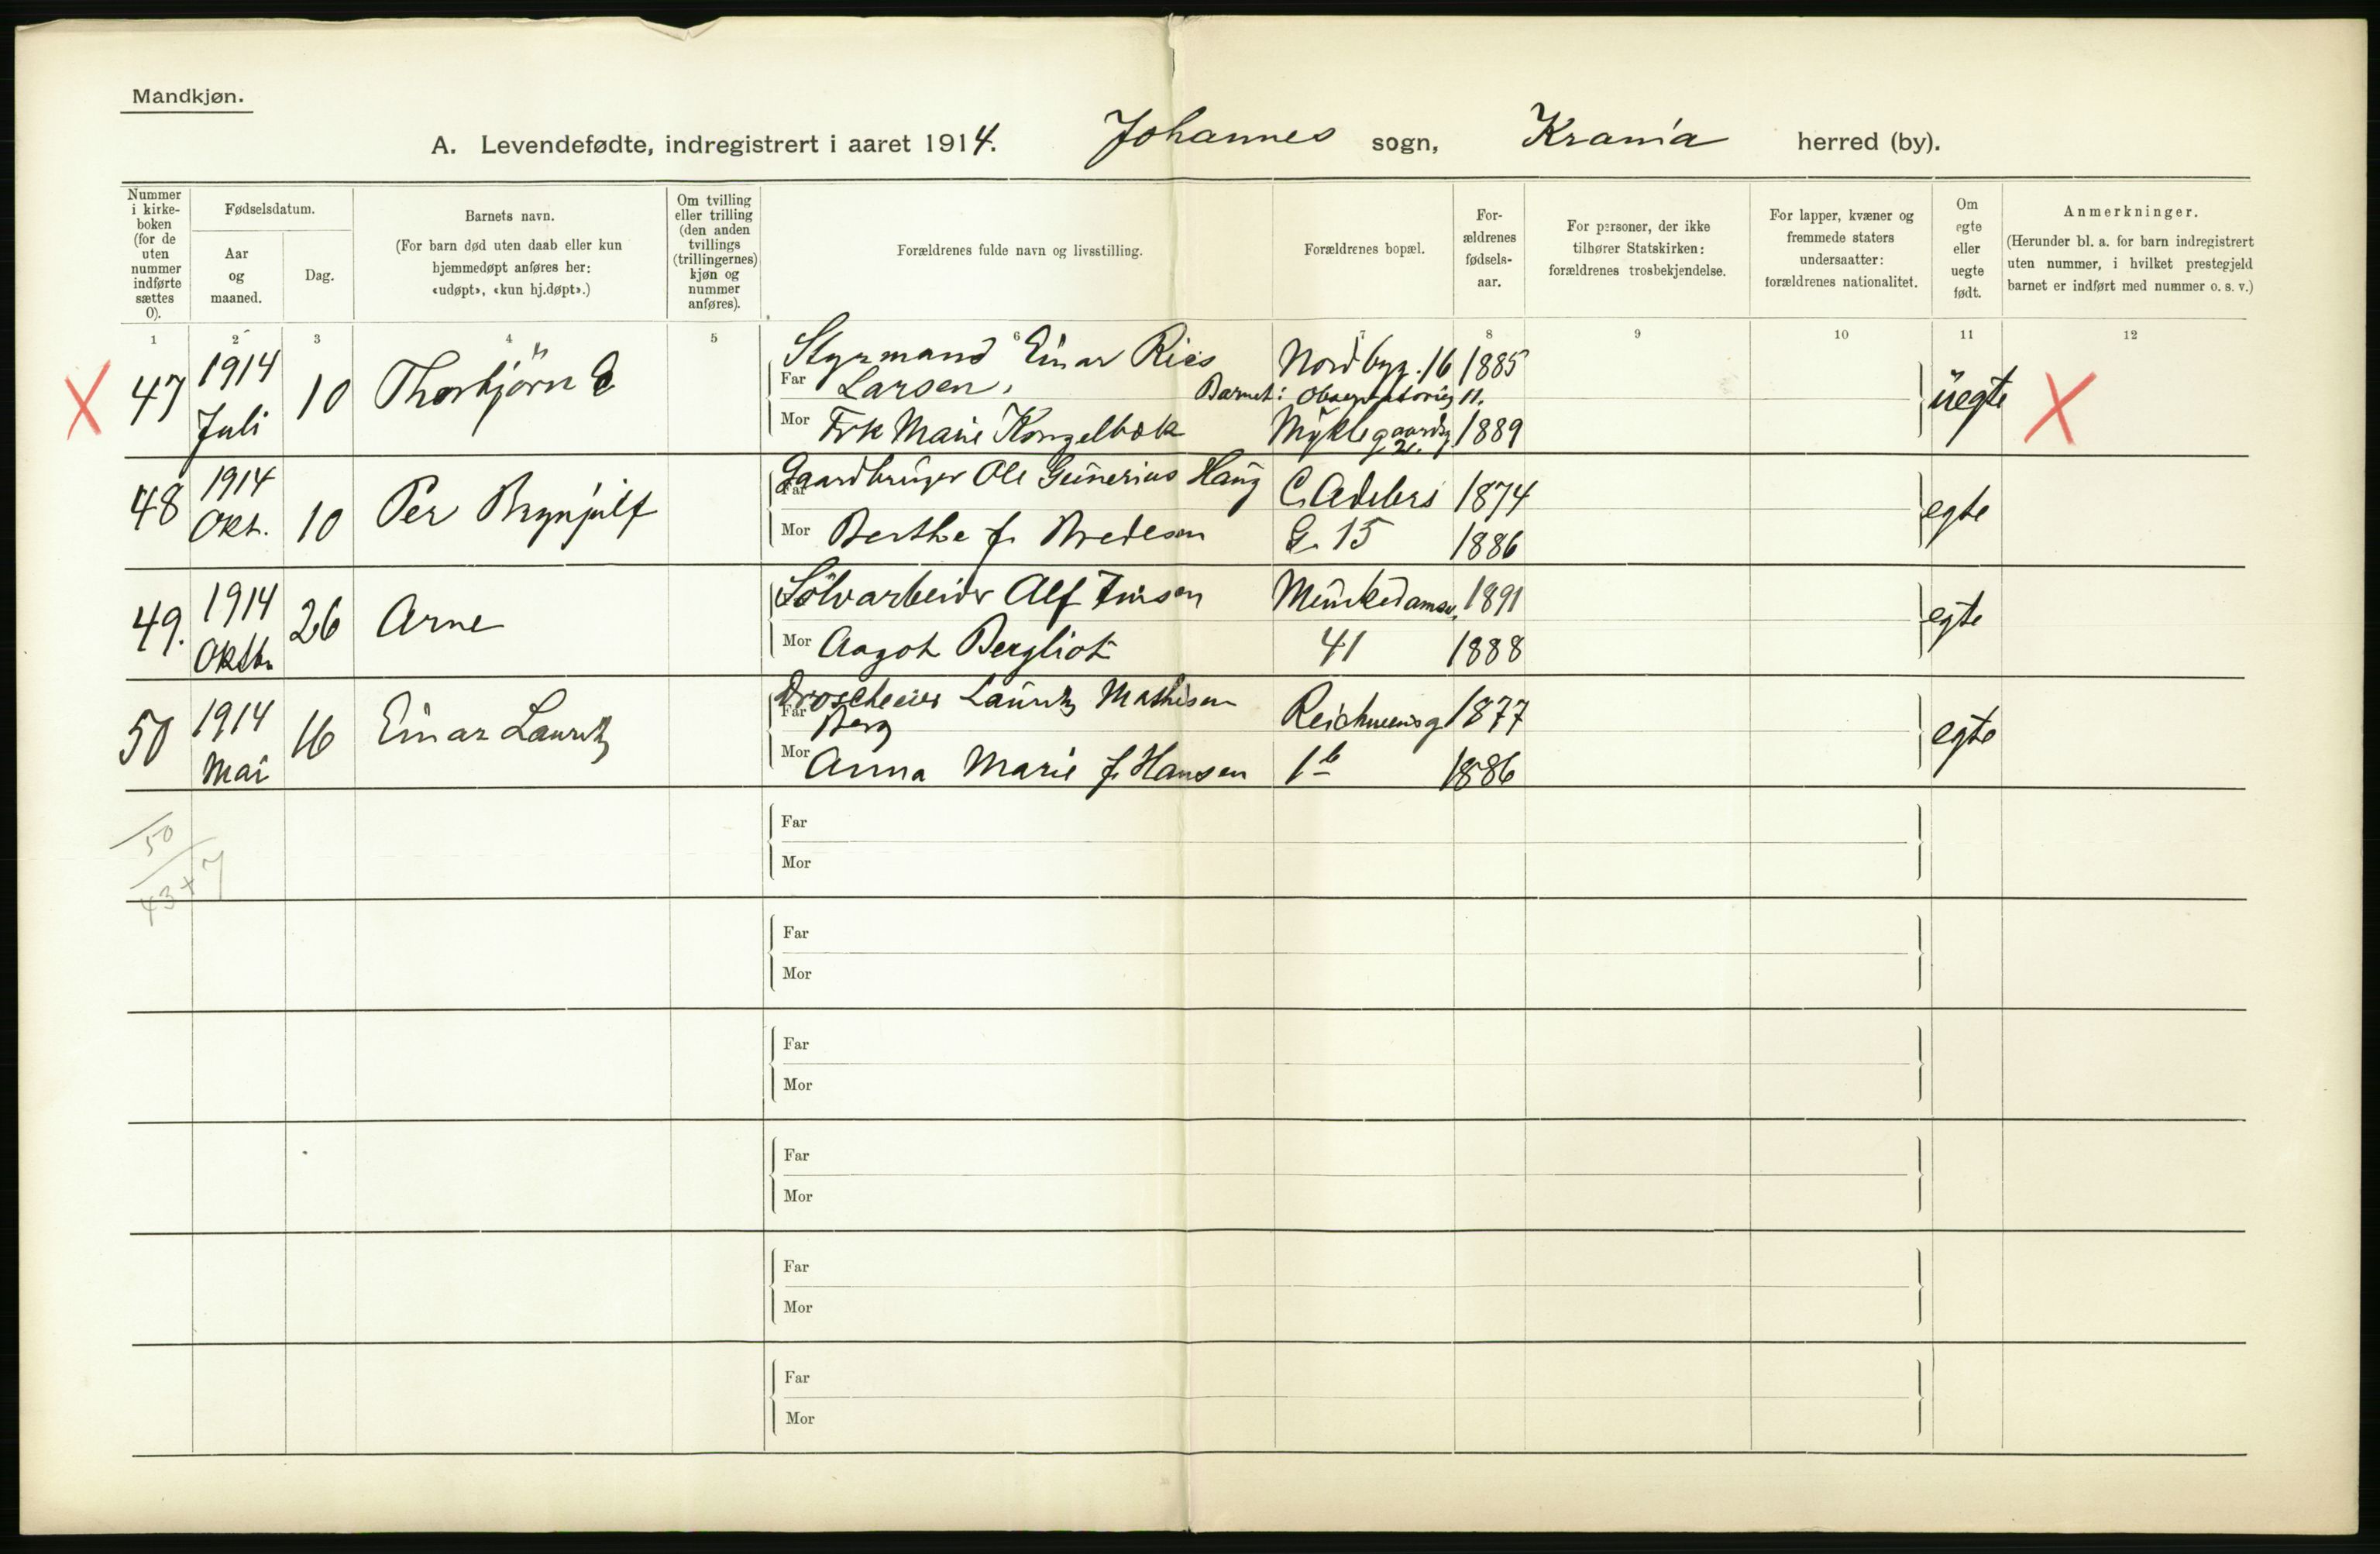 Mandkjøn.
A. Levendefødte, indregistrert i aaret 1914. Johannes sogn, Krania herred (by).
Nummer i kirke-boken (for de uten nummer indførte sættes 0).
Fødselsdatum.
Aar og maaned.
Dag.
Barnets navn.
(For barn død uten daab eller kun hjemmedøpt anføres her: «udøpt», «kun hj.døpt».)
Om tvilling eller trilling (den anden tvillings (trillingernes) kjøn og nummer anføres).
Forældrenes fulde navn og livsstilling.
Forældrenes bopæl.
For-ældrenes fødsels-aar.
For personer, der ikke tilhører Statskirken: forældrenes trosbekjendelse.
For lapper, kvæner og fremmede staters undersaatter: forældrenes nationalitet.
Om egte eller uegte født.
Anmerkninger.
(Herunder bl. a. for barn indregistrert uten nummer, i hvilket prestegjeld barnet er indført med nummer o. s. v.)
1 2 3 4 5 6 7 8 9 10 11 12
X 47 1914 Juli 10 Thorbjörn E
Styrmand Einar Ries
Far Larsen, Nordbyg. 16 1885
Barnet: Observatorieg 11.
Mor Frk Marie Kongelbæk Myklegaardsg 1889
uegte X
48 1914 Okt. 10 Per Brynjulf
Far Gaardbruger Ole Gunerius Haug C. Adelers 1874
Mor Berthe f. Bredesen G. 15 1886
egte
49. 1914 Oktb. 26 Arne
Sölvarbeider Alf Munkedamsv. 1891
Mor Aagot Bergliot 41 1888
egte
50 1914 Mai 16 Einar Lauritz
Droscheeier Lauritz Mathisen
Far Berg Reichweinsg 1877
Mor Anna Marie f. Hansen 1b 1886
egte
50
43+7
Far
Mor
Far
Mor
Far
Mor
Far
Mor
Far
Mor
Far
Mor